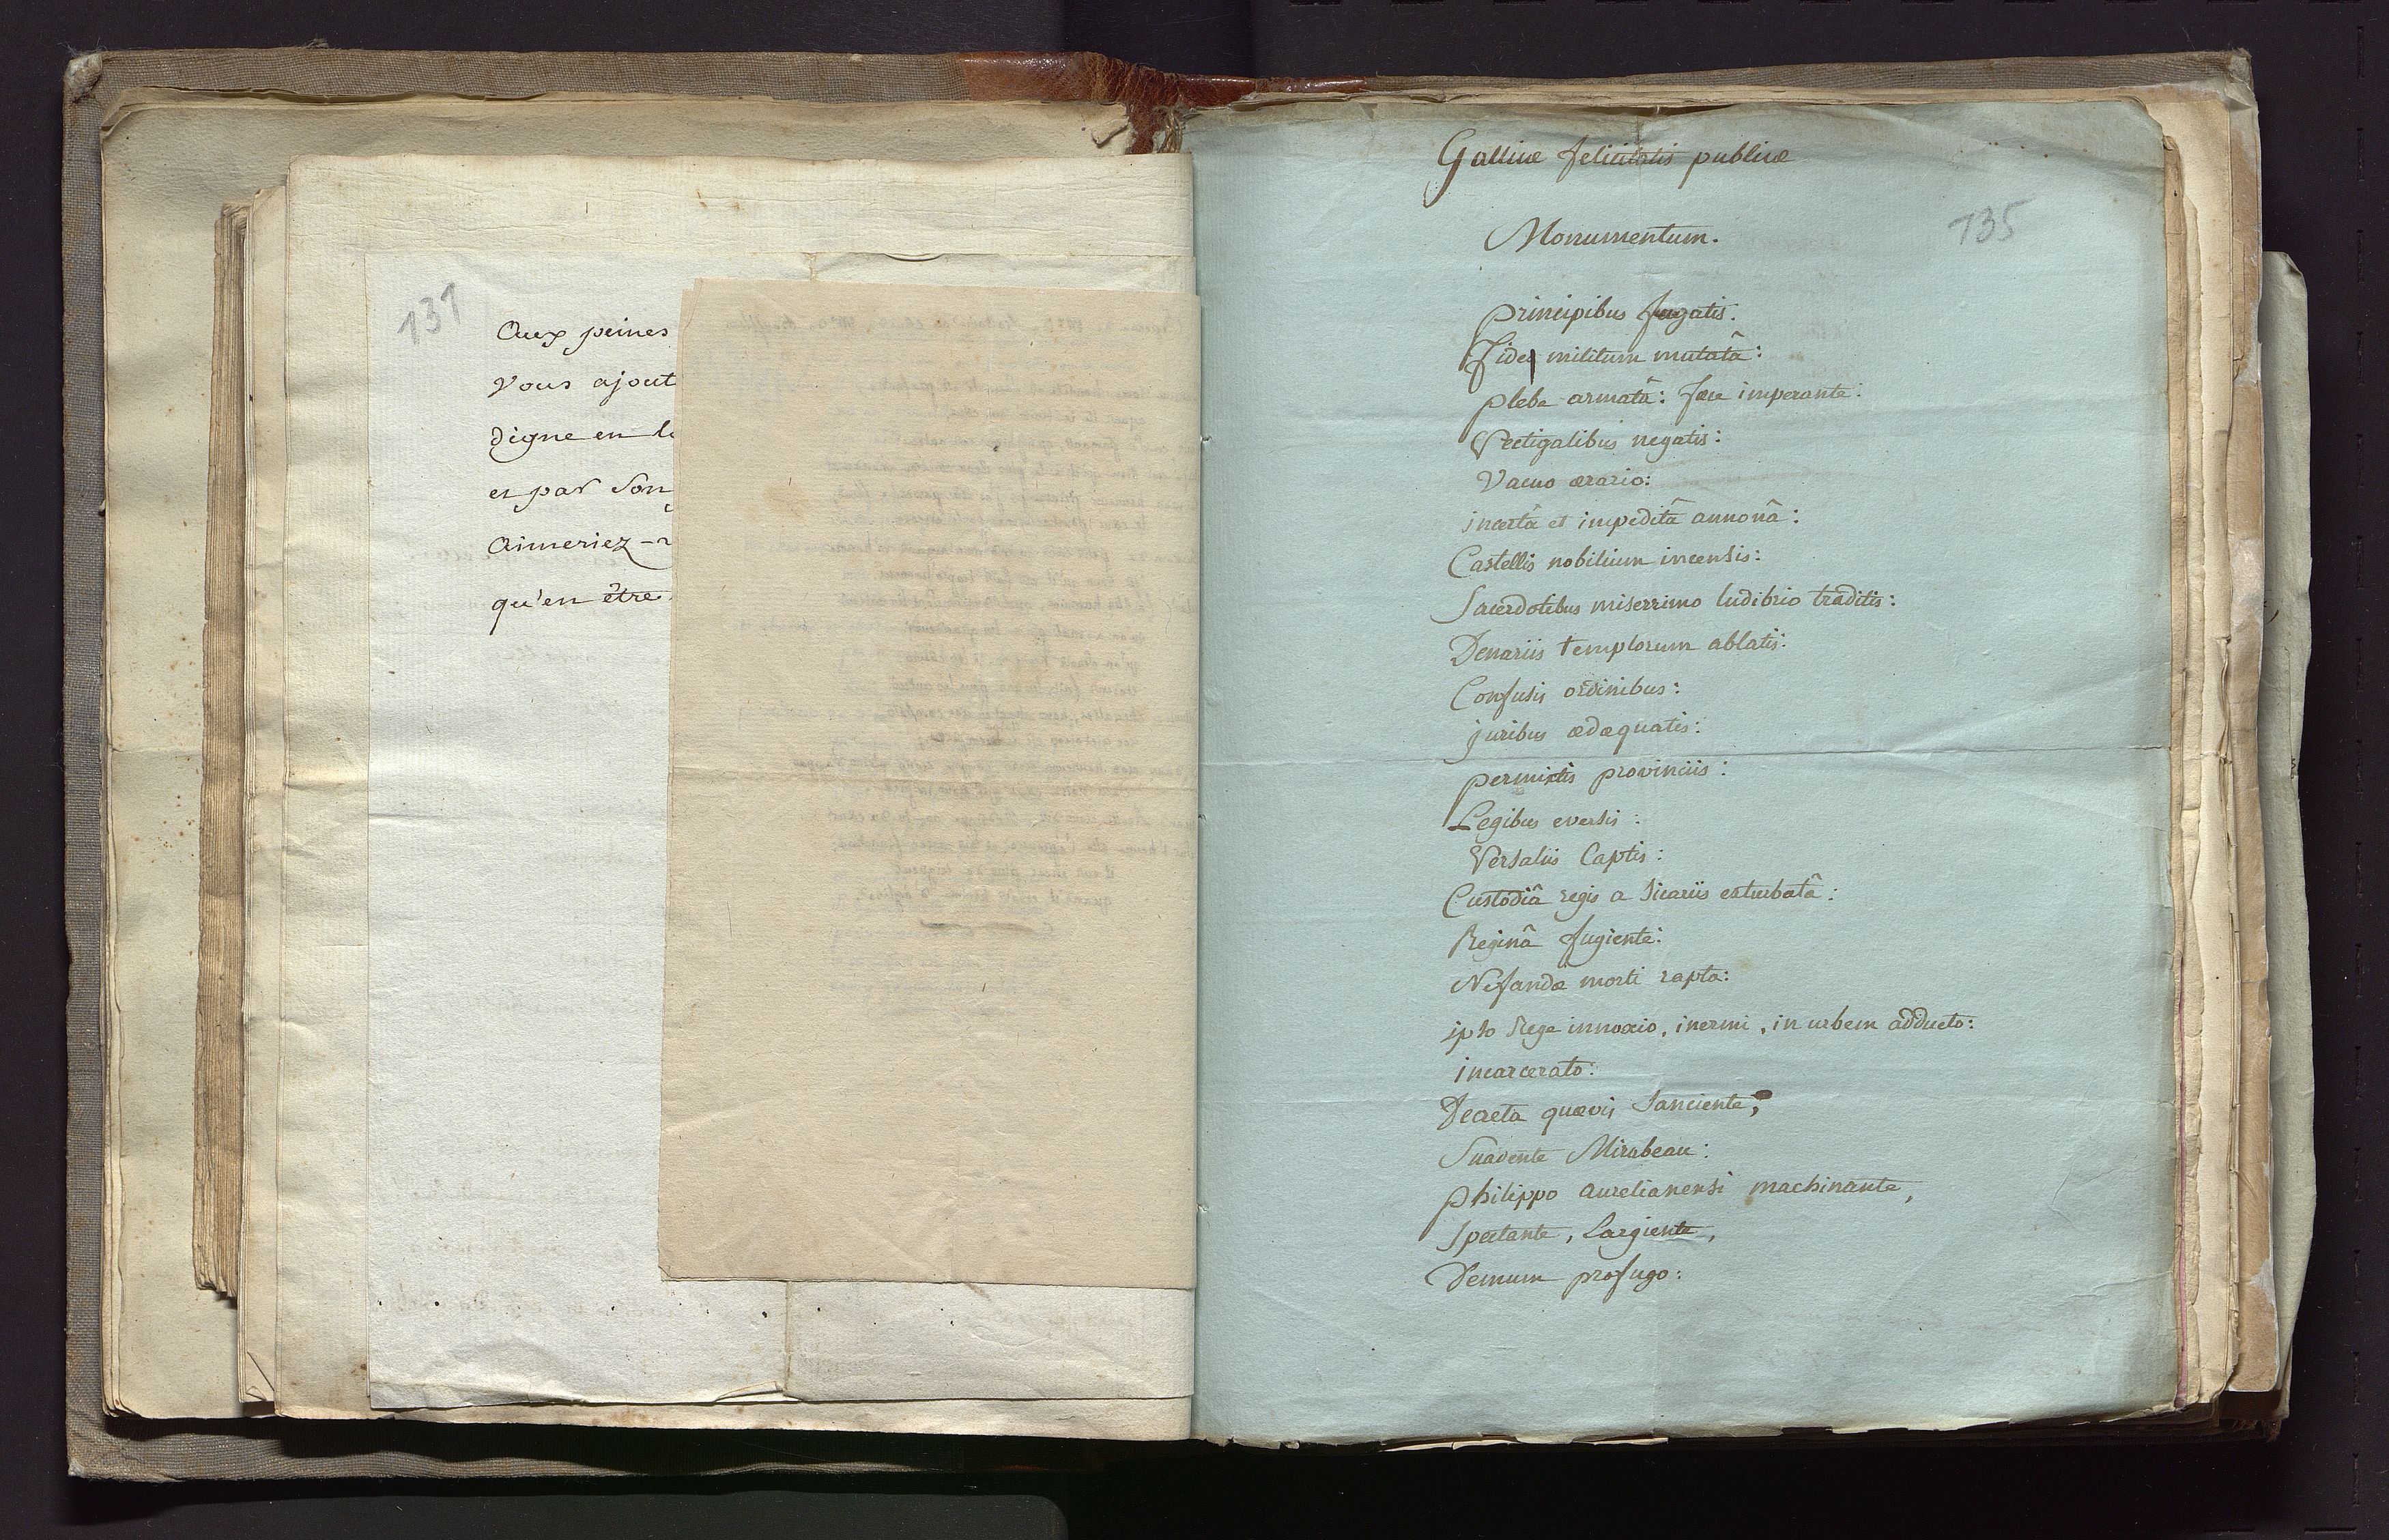 131
Aux peines
Vous ajout
digne en le
et par Son
Aimeriez-
qu'en être
135
Gallicæ felicitatis publicæ
Monumentum.
principibus fugatis:
Fide militum mutatâ:
plebe armatâ: fæce imperante:
Vectigalibus negatis:
Vacuo ærario:
incertâ et impeditâ annonâ:
Castellis nobilium incensis:
Sacerdotibus miserrimo ludibrio traditis:
Denariis templorum ablatis:
Confusis ordinibus:
juribus ædæquatis:
permixtis provinciis:
Legibus eversis:
Versaliis Captis:
Custodiâ regis a Sicariis exturbatâ:
Reginâ fugiente:
Nefandæ morti rapta:
ipso Rege innoxio, inermi, in urbem adducto:
incarcerato:
Decreta quævis Sanciente;
Suadente Mirabeau:
philippo aurelianensi machinante,
Spectante, Largiente,
Demum profugo: